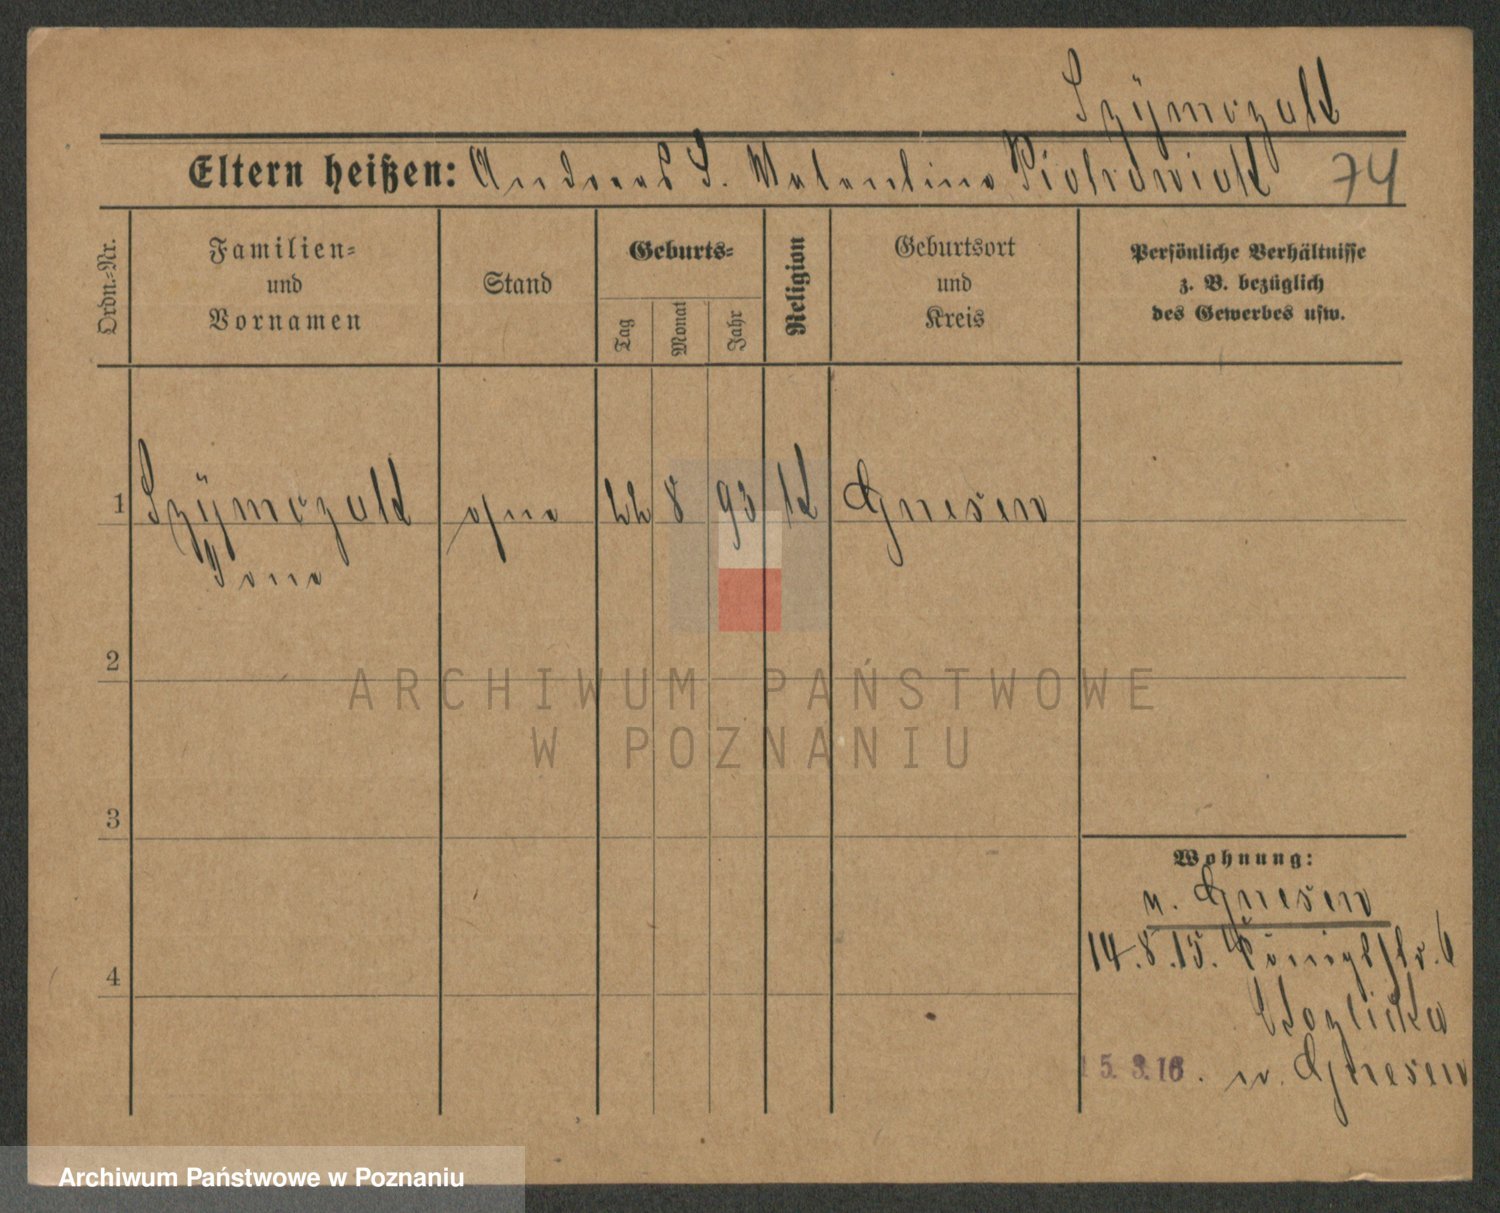 Szÿmczak
Eltern heißen: Andreas S. Valentine Piotrowiak 74
Ordn.=Nr.
Familien=
und
Vornamen
Stand
Geburts=
Tag
Monat
Jahr
Religion
Geburtsort
und
Kreis
Persönliche Verhältnisse
z. B. bezüglich
des Gewerbes usw.
1 Szÿmczak ohne 22 8 93 k Gnesen
2
ARCHIWUM PAŃSTWOWE
W POZNANIU
3
Wohnung:
n. Gnesen
14.8.15. Königstr. 6
4
15.3.16. n. Gnesen
Archiwum Państwowe w Poznaniu